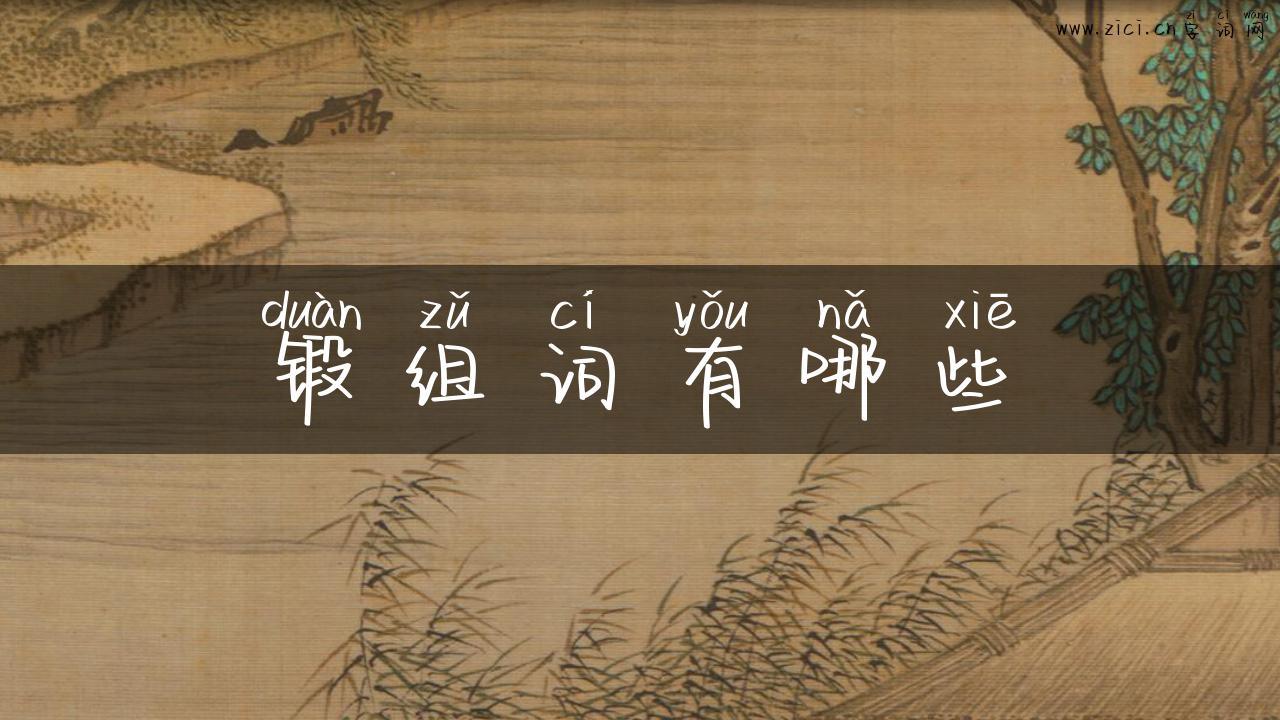 zì cí wǎng
www.zici.cn字词网
duàn zǔ cí yǒu nǎ xiē
锻组词有哪些